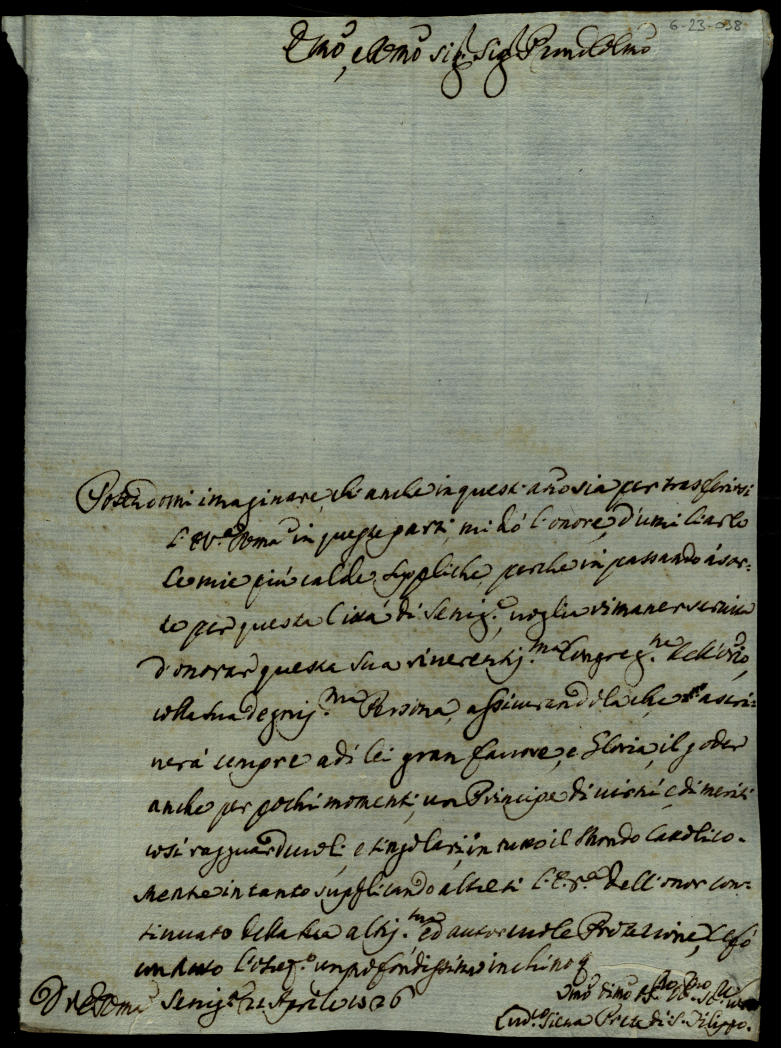 6-23-038
Emo, e Rmo Sig. Sig. Pron Colmo
Potendomi imaginare, che anche in quest'anno sia per trasferirsi
l'E.V. Roma in queste parti, mi dò l'onore, d'umiliarlo
le mie più calde suppliche perche in passando
per questa Città di Senig.a, voglia rimaner servita
d'onorar questa sua riverentis.ma Congreg.ne dell'Or.o,
colla sua degnis.ma Persona, assicurandola, che ascri=
verà sempre a di lei gran favore, e Gloria, il poder
anche per pochi momenti, un Principe di virtù, e di meriti
così ragguardevoli, e singolari, in tutto il Mondo Cattolico.
Mentre intanto supplicando l'E.V. dell'onor con=
tinuato della sua altis.ma ed autorevole Protezione, le fò
con tutto l'osseq.o un profondissimo inchino
D.V.E. Roma Senig.a 21 Aprile 1726
Umo dimo
Lud.o Siena Prete di S. Filippo.